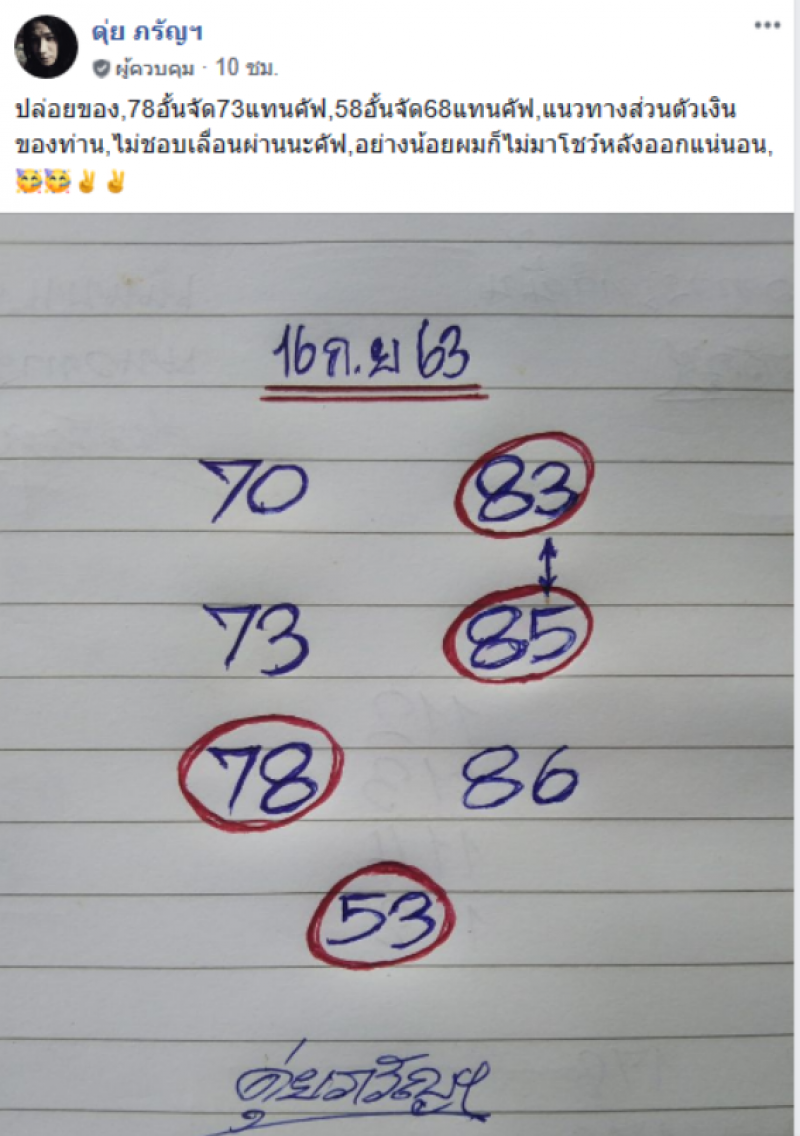 ดุ่ย ภรัญฯ
ผู้ควบคุม · 10 ชม.
ปล่อยของ,78อั้นจัด73แทนคัฟ,58อั้นจัด68แทนคัฟ,แนวทางส่วนตัวเงิน
ของท่าน,ไม่ชอบเลื่อนผ่านนะคัฟ,อย่างน้อยผมก็ไม่มาโชว์หลังออกแน่นอน,
🥳🥳✌️✌️
16 ก.ย 63
70 83
73 85
78 86
53
ดุ่ยภรัญฯ